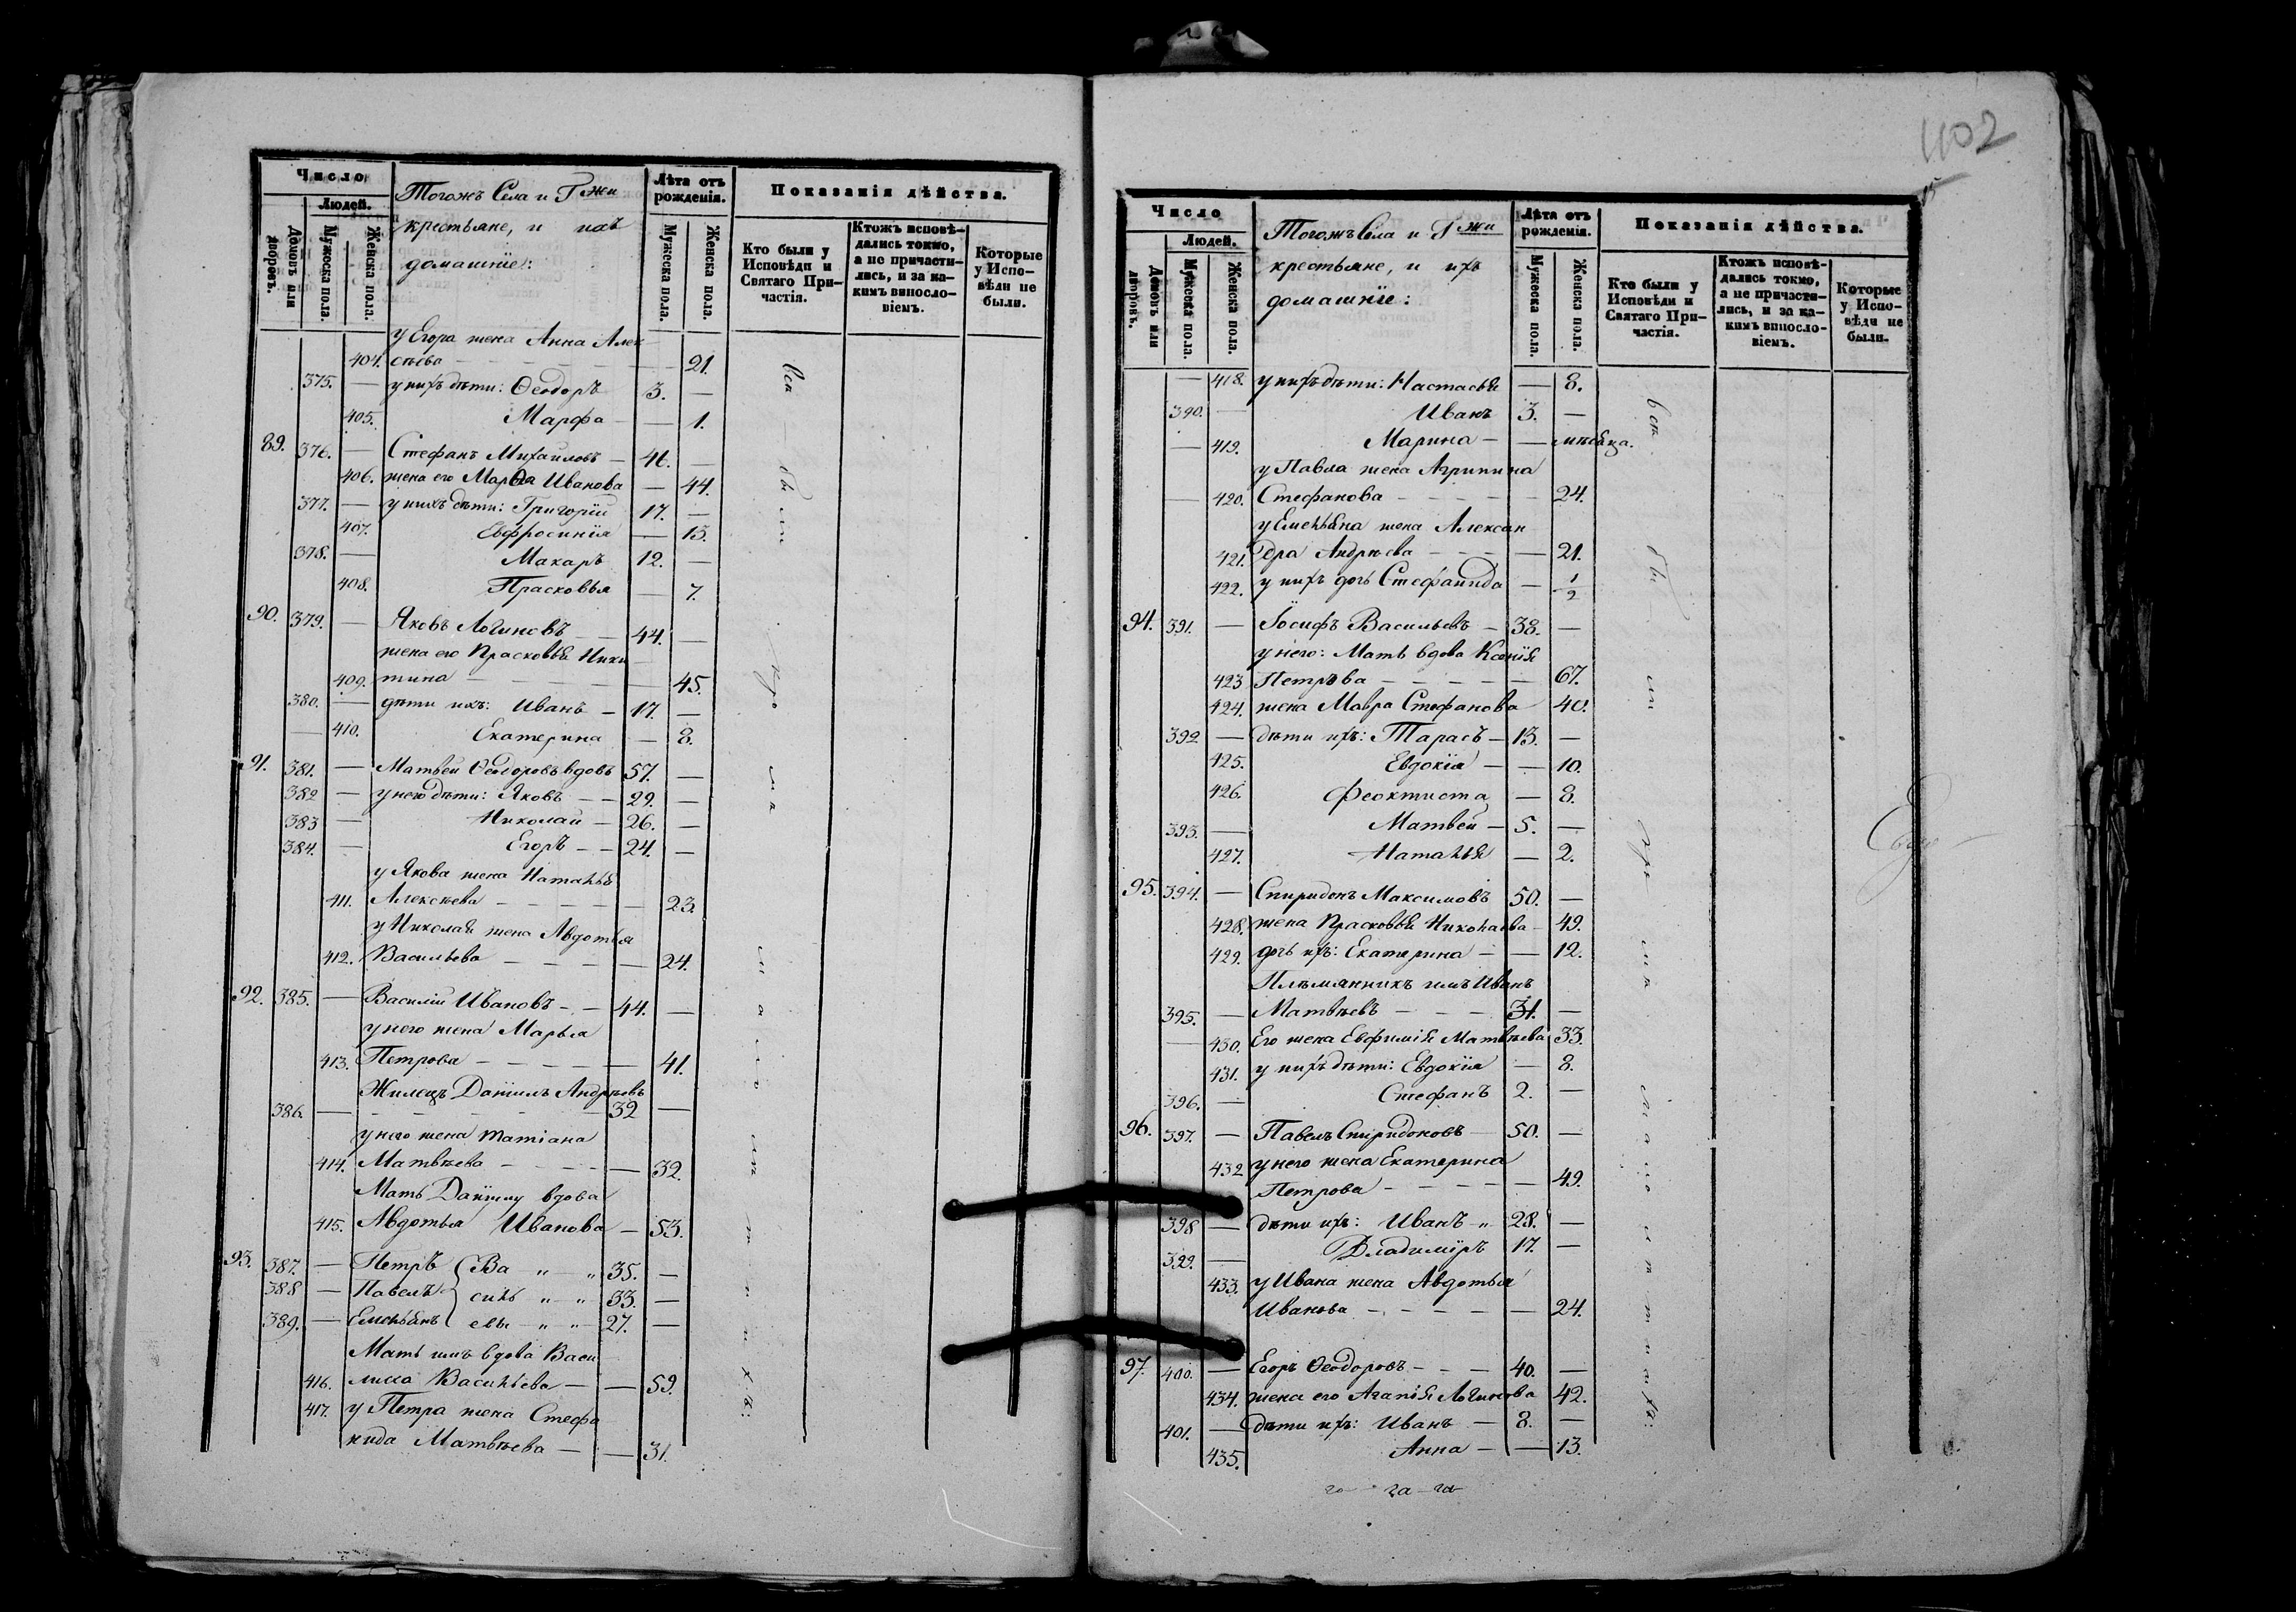 Число
Людей.
Домовъ или дворовъ.
Мужеска пола.
Женска пола.
Тогожъ Села и Г жи
крестьяне, и ихъ
домашніе:
Лѣта отъ рожденія.
Мужеска пола.
Женска пола.
Показанія дѣйства.
Кто были у Исповѣди и Святаго Причастія.
Ктожъ исповѣдались токмо, а не причастились, и за какимъ винословіемъ.
Которые у Исповѣди не были.
у Егора жена Анна Алек
404. сѣева — 21.
375. — у нихъ дѣти: Ѳеодоръ 3. —
405. Марфа — 1.
89. 376. — Стефанъ Михайловъ — 46. —
406. жена его Марѳа Иванова — 44.
377. — у нихъ дѣти: Григорій 17. —
407. Евфросинія — 15.
378. — Макаръ 12. —
408. Прасковья — 7.
90. 379. — Яковъ Логиновъ — 44. —
жена его Прасковья Ники
409. тина — 45.
380. — дѣти ихъ: Иванъ — 17. —
— 410. Екатерина — 8.
91. 381. — Матвей Ѳеодоровъ вдовъ 57. —
382 — у него дѣти: Яковъ — 29. —
383 — Николай — 26. —
384. — Егоръ — 24. —
у Якова жена Наталья
411. Алексѣева — 23.
у Николая жена Авдотья
412. Васильева — 24.
92. 385. — Василій Ивановъ — 44. —
у него жена Марья
413. Петрова — 41.
Жилецъ Даніилъ Андрѣевъ
386. — 32 —
у него жена Татіана
414. Матвѣева — 32.
Мать Даніилу вдова
415. Авдотья Иванова — 53.
93. 387. — Петръ { Ва „ „ 35. —
388 — Павелъ силь „ „ 33. —
389. — Емельянъ евы „ „ 27. —
Мать имъ вдова Васи
416. лиса Васильева — 59.
417. у Петра жена Стефа
нида Матвѣева — 31.
402
Число
Людей.
Домовъ или дворовъ.
Мужеска пола.
Женска пола.
Тогожъ Села и Г жи
крестьяне, и ихъ
домашніе:
Лѣта отъ рожденія.
Мужеска пола.
Женска пола.
Показанія дѣйства.
Кто были у Исповѣди и Святаго Причастія.
Ктожъ исповѣдались токмо, а не причастились, и за какимъ винословіемъ.
Которые у Исповѣди не были.
— 418. у нихъ дѣти: Настасья — 8.
390. — Иванъ 3. —
— 419. Марина — мѣсяца.
у Павла жена Агрипина
— 420. Стефанова — 24.
у Емельяна жена Алексан
421. дра Андрѣева — 21.
422. у нихъ дочь Стефанида — 1/2
94. 391. — Іосифъ Васильевъ — 38. —
у него: Мать вдова Ксенія
423 Петрова — 67.
424. жена Мавра Стефанова 40.
392 — дѣти ихъ: Тарасъ — 13. —
425. Евдокія — 10.
426. Феоктиста — 8.
393. — Матвей — 5. —
427. Наталья — 2.
95. 394. — Спиридонъ Максимовъ 50. —
428. жена Прасковья Николаева — 49.
429. дочь ихъ: Екатерина — 12.
Племянникъ имъ Иванъ
395. — Матвѣевъ — 31. —
— 430. Его жена Евфимія Матвѣева 33.
431. у нихъ дѣти: Евдокія — 8.
396. — Стефанъ 2. —
96. 397. — Павелъ Спиридоновъ 50. —
432 у него жена Екатерина
Петрова — 49.
398 — дѣти ихъ: Иванъ „ 28. —
399. — Владиміръ 17. —
433. у Ивана жена Авдотья
Иванова — 24.
97. 400. — Егоръ Ѳеодоровъ — 40. —
434. жена его Агапія Логинова 42.
401. — дѣти ихъ: Иванъ — 8. —
435. Анна — 13.